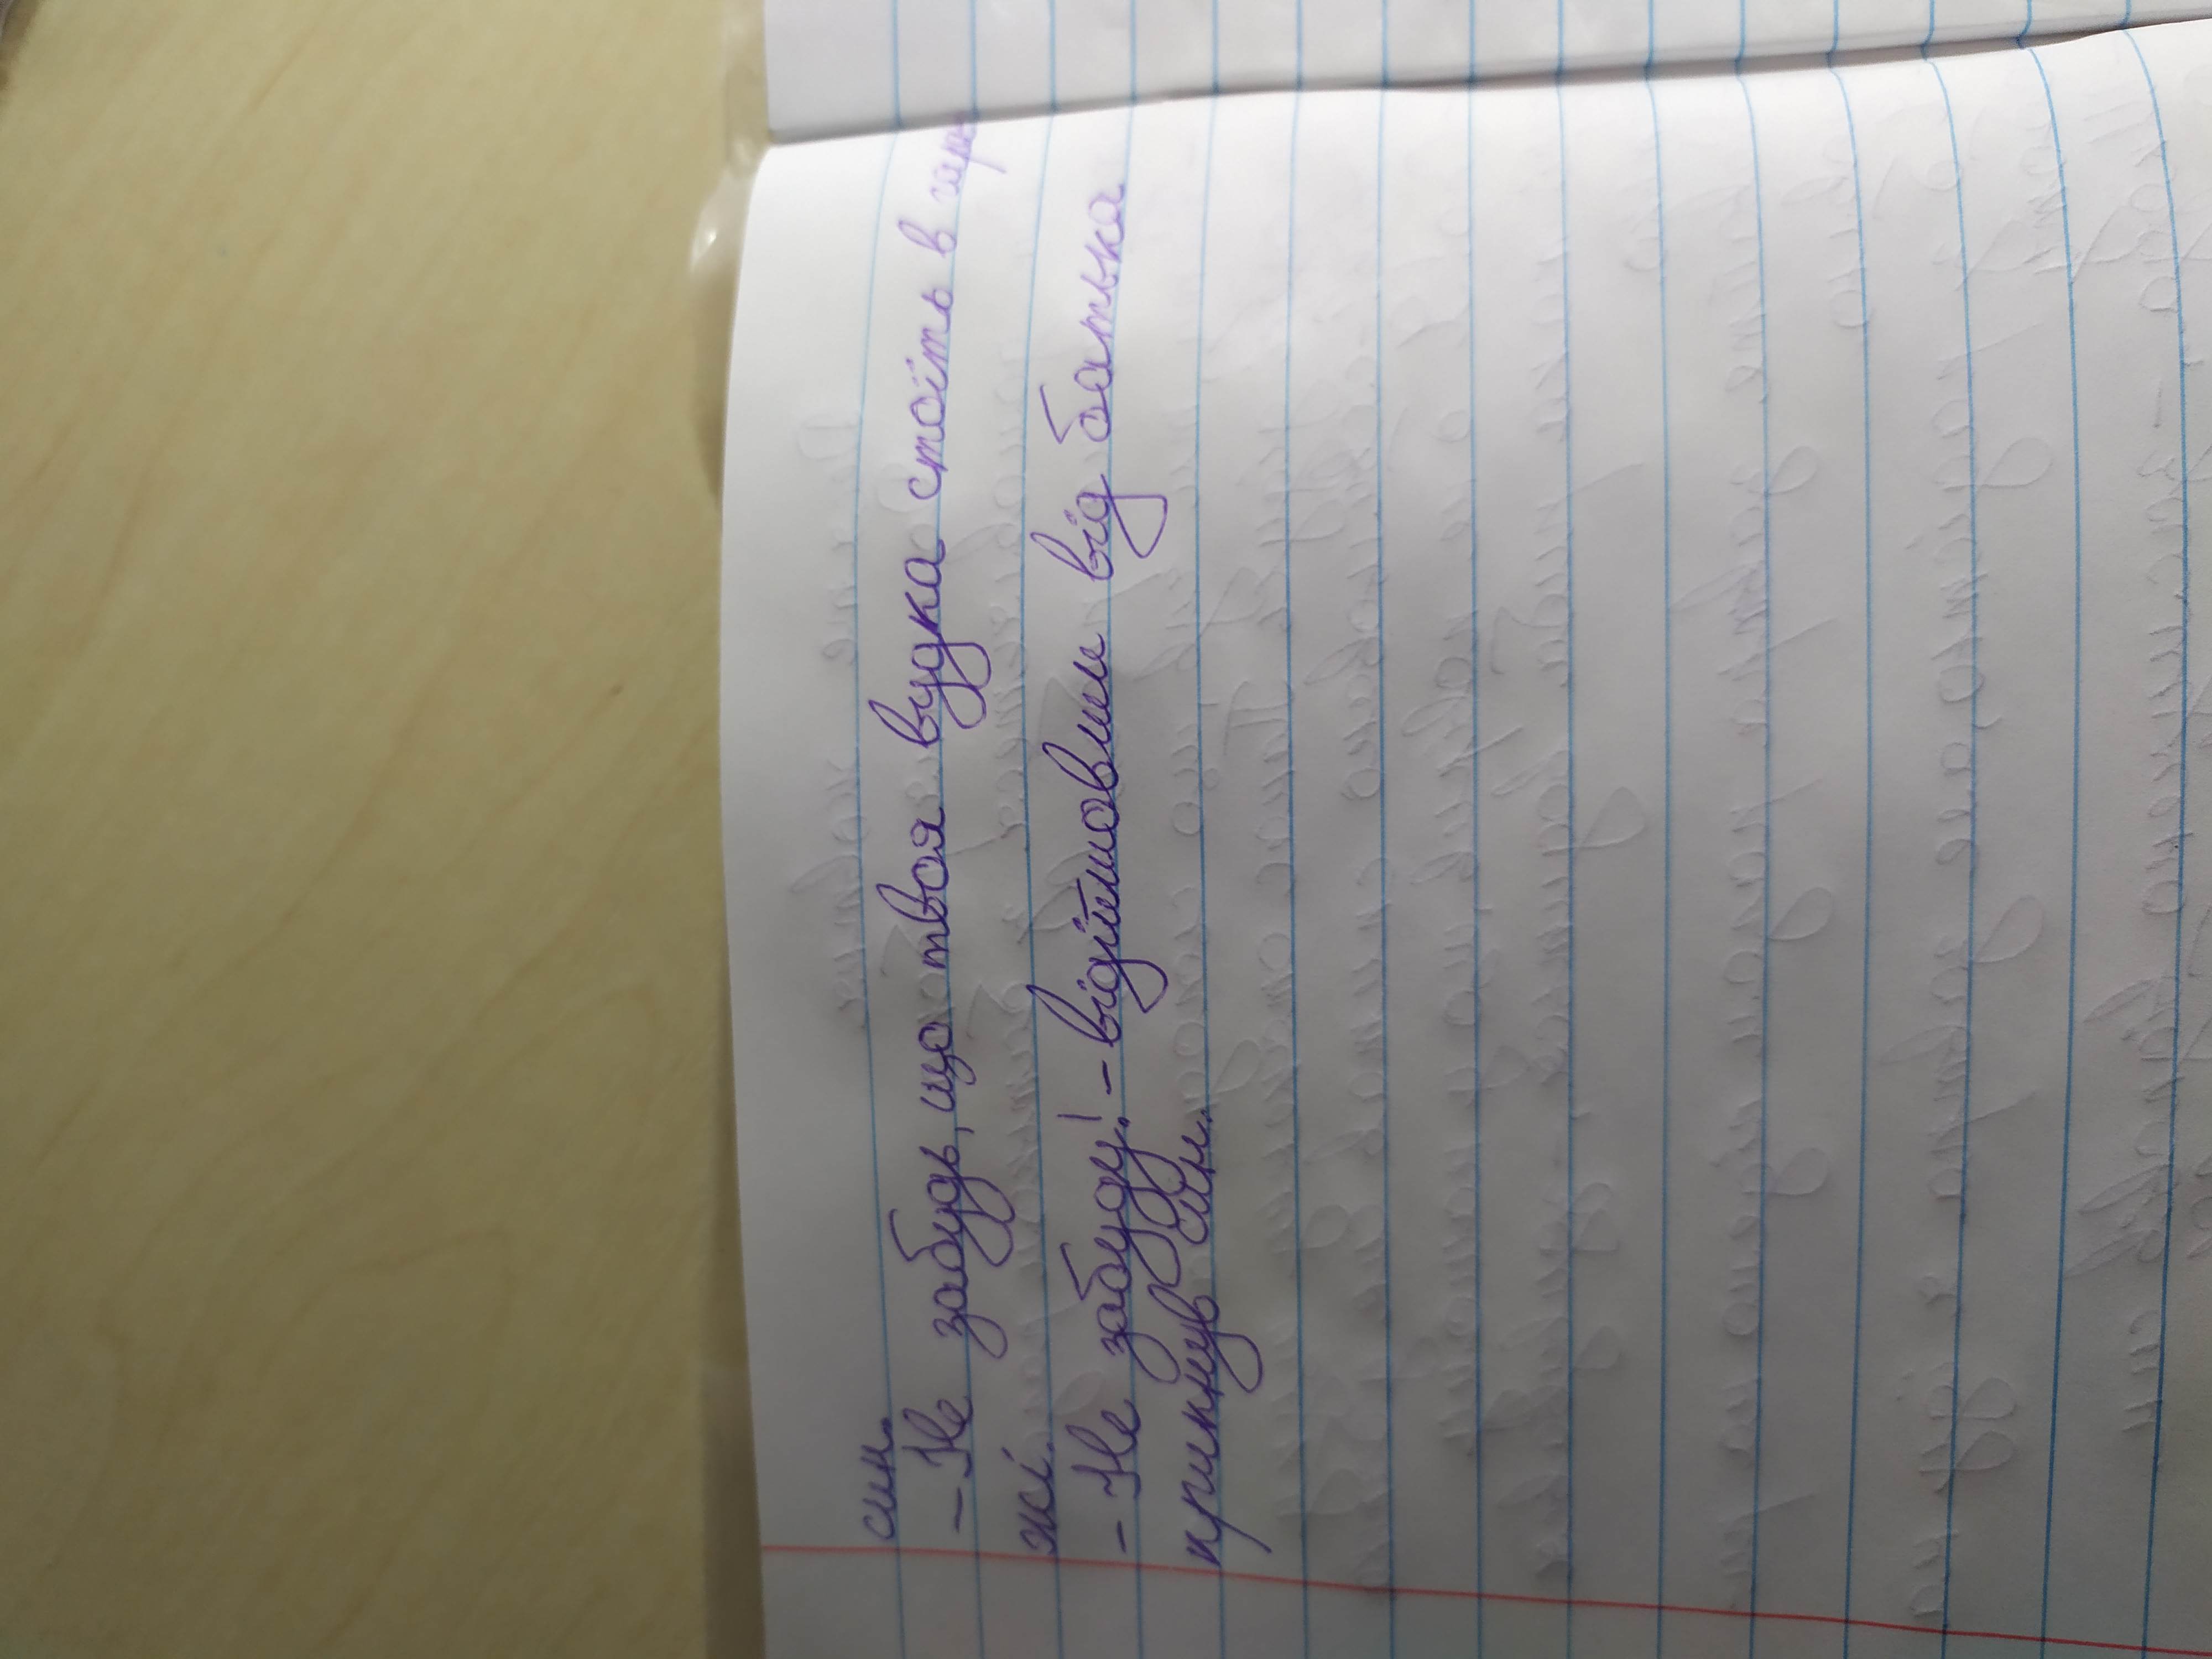 син.
– Не забудь, що твоя вудка стоїть в гара
жі.
– Не забуду! – відійшовши від батька
крикнув син.